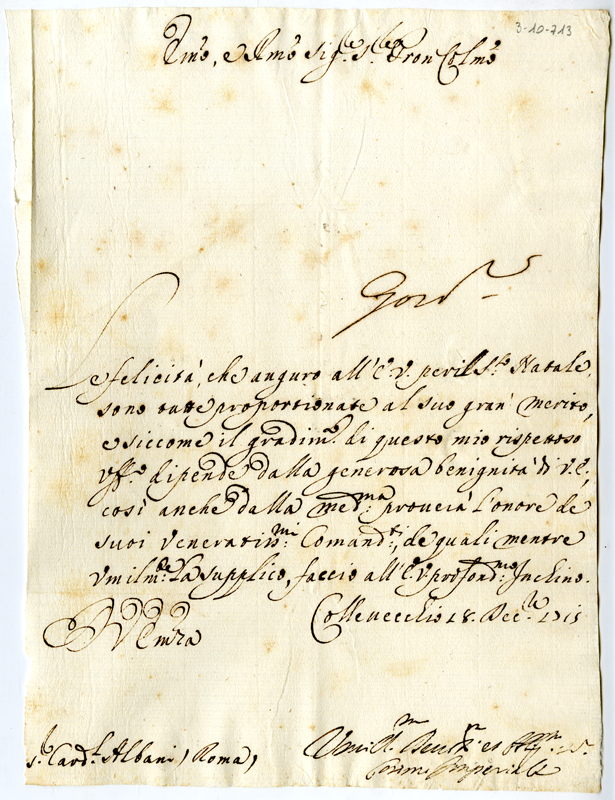 3-10-213
Em̃o, e Rm̃o Sig.re S.re Pron Colm̃o
Le felicità, che auguro all'E. V. per il S.to Natale,
sono tutte proportionate al suo gran merito,
e siccome il gradim.to di questo mio rispettoso
uff.o dipende dalla generosa benignità di V. E.,
così anche dalla med.ma prouerà l'onore de
suoi veneratiss.mi Comand.ti, de quali mentre
vmilm.te La supplico, faccio all'E. V. profond.mo Inchino.
Colleuecchio 18. Dec.re 1715
V Em̃za
S.r Card.l Albani, Roma,
Vmill.mo Deu.mo et Obl.mo S.r
Imperiale